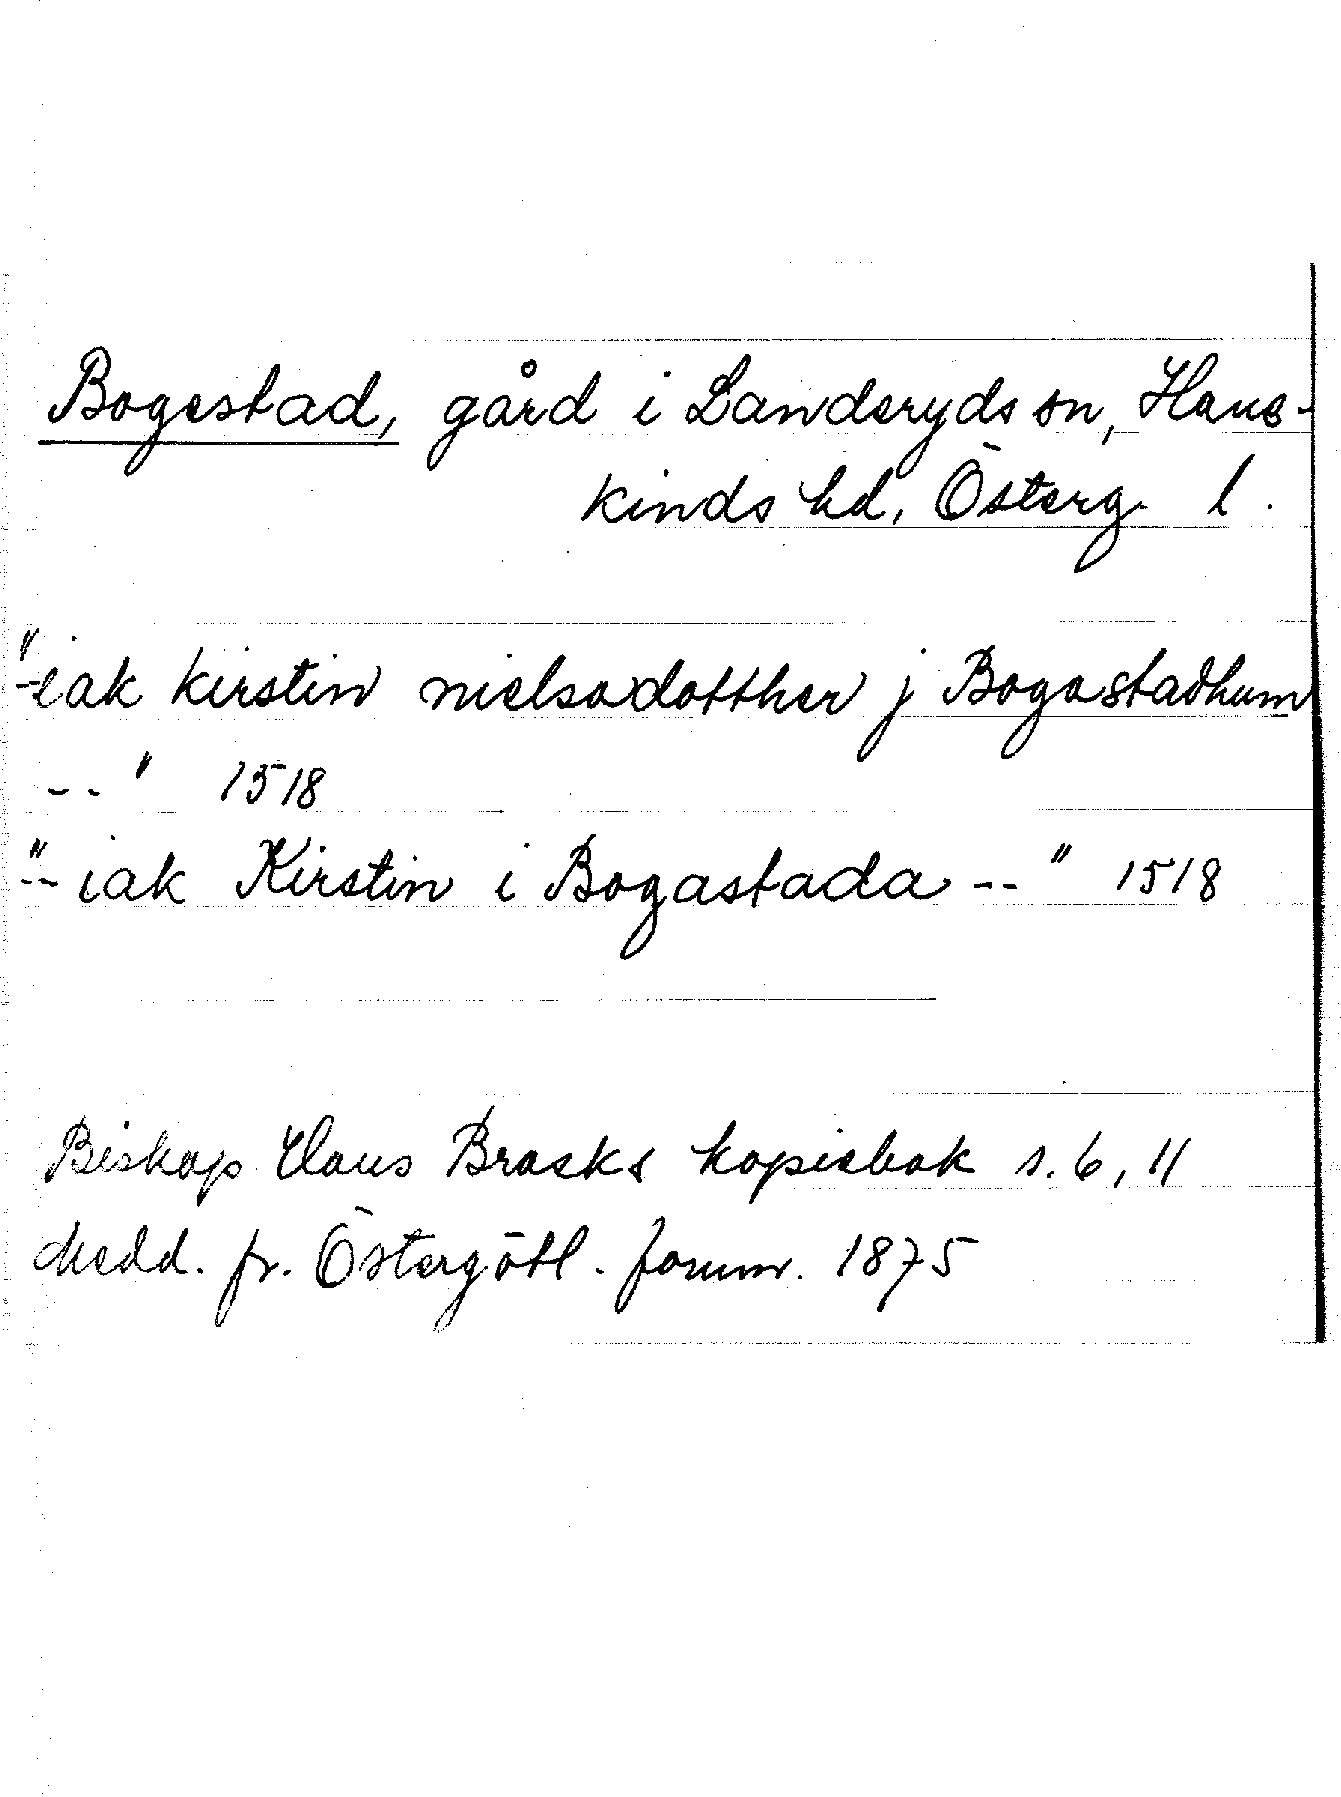 Bogestad, gård i Landeryds sn, Hane-
kinds hd, Österg. l.
"-iak kirstin nielsadotther j Bogastadhum
--" 1518
"-- iak Kirstin i Bogastada --" 1518
Biskop Hans Brasks kopiebok s. 6, 11
Medd. fr. Östergötl. fornm. 1875